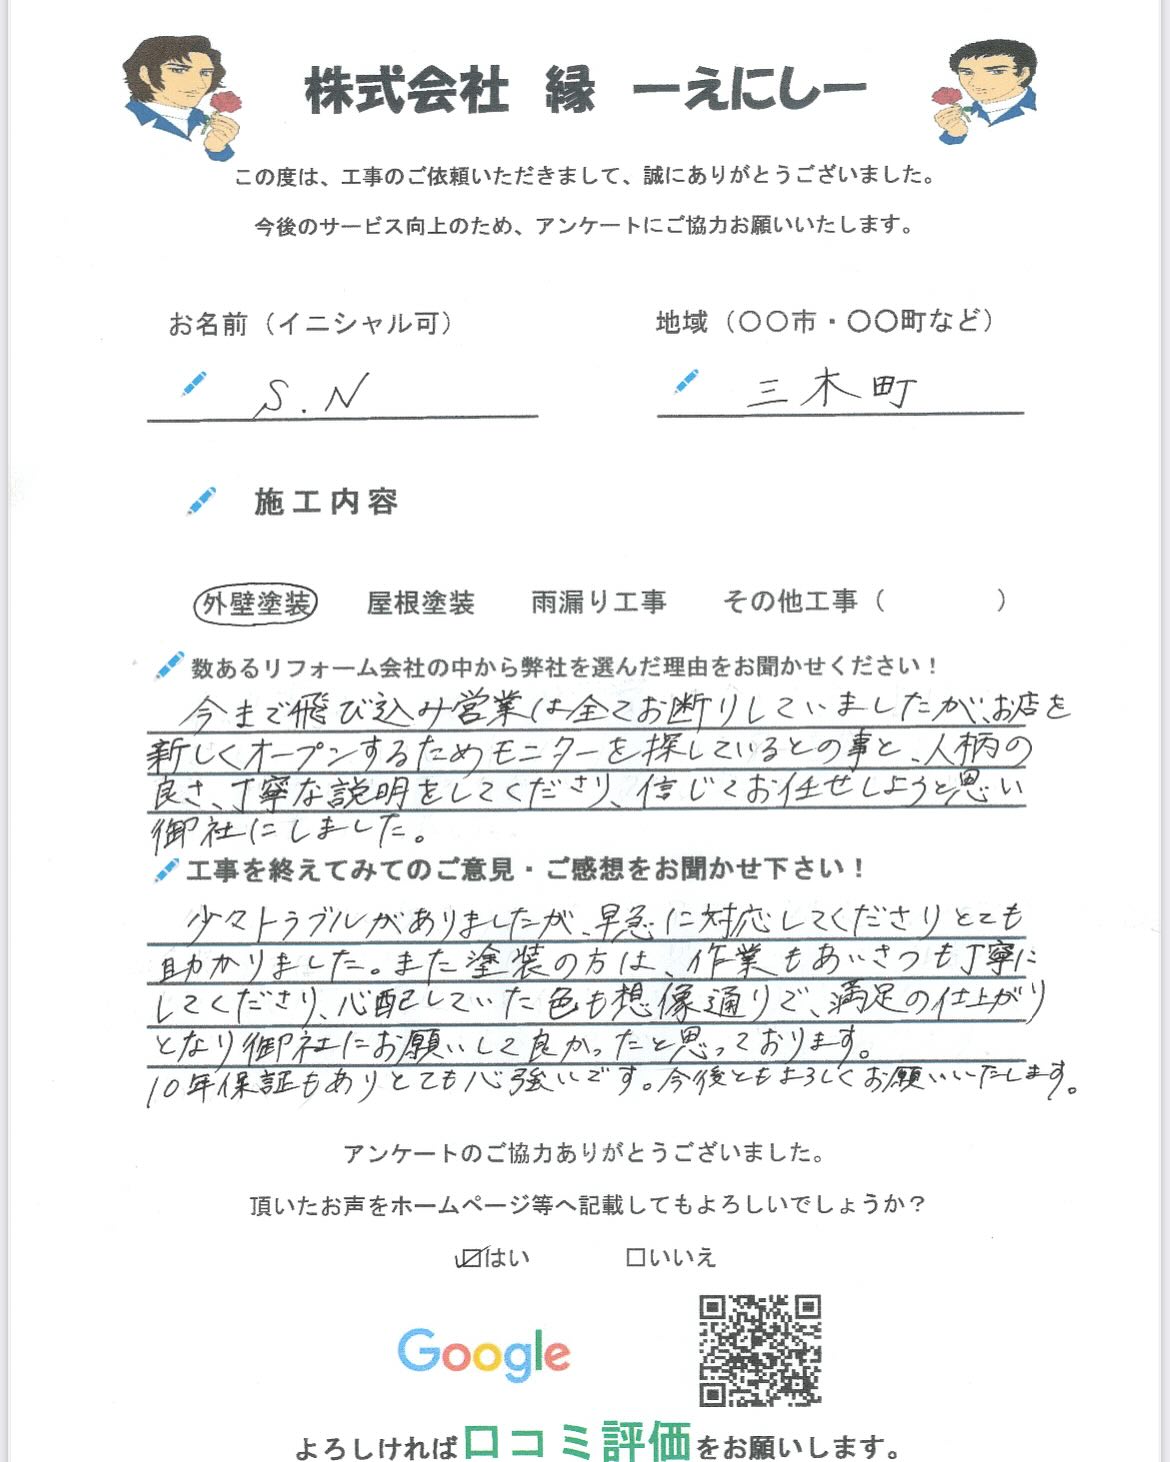 株式会社 縁 ーえにしー
この度は、工事のご依頼いただきまして、誠にありがとうございました。
今後のサービス向上のため、アンケートにご協力お願いいたします。
お名前（イニシャル可） 地域（〇〇市・〇〇町など）
S.N 三木町
施工内容
外壁塗装 屋根塗装 雨漏り工事 その他工事（ ）
数あるリフォーム会社の中から弊社を選んだ理由をお聞かせください！
今まで飛び込み営業は全てお断りしていましたが、お店を
新しくオープンするためモニターを探しているとの事と、人柄の
良さ、丁寧な説明をしてくださり、信じてお任せしようと思い
御社にしました。
工事を終えてみてのご意見・ご感想をお聞かせ下さい！
少々トラブルがありましたが、早急に対応してくださりとても
助かりました。また塗装の方は、作業もあいさつも丁寧に
してくださり、心配していた色も想像通りで、満足の仕上がり
となり御社にお願いして良かったと思っております。
10年保証もありとても心強いです。今後ともよろしくお願いいたします。
アンケートのご協力ありがとうございました。
頂いたお声をホームページ等へ記載してもよろしいでしょうか？
☑はい □いいえ
Google
よろしければ口コミ評価をお願いします。